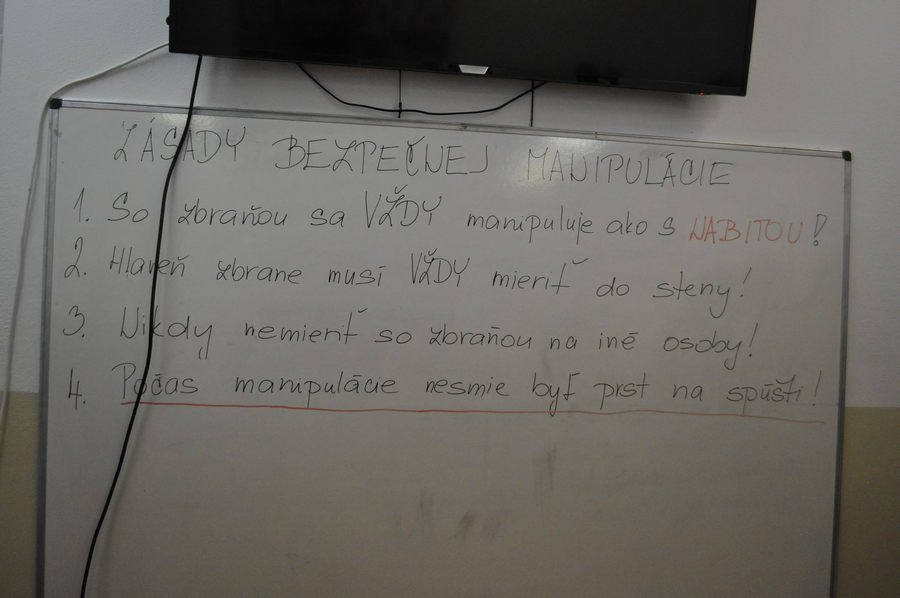 ZÁSADY BEZPEČNEJ MANIPULÁCIE
1. So zbraňou sa VŽDY manipuluje ako s NABITOU!
2. Hlaveň zbrane musí VŽDY mieriť do steny!
3. Nikdy nemieriť so zbraňou na iné osoby!
4. Počas manipulácie nesmie byť prst na spúšti!